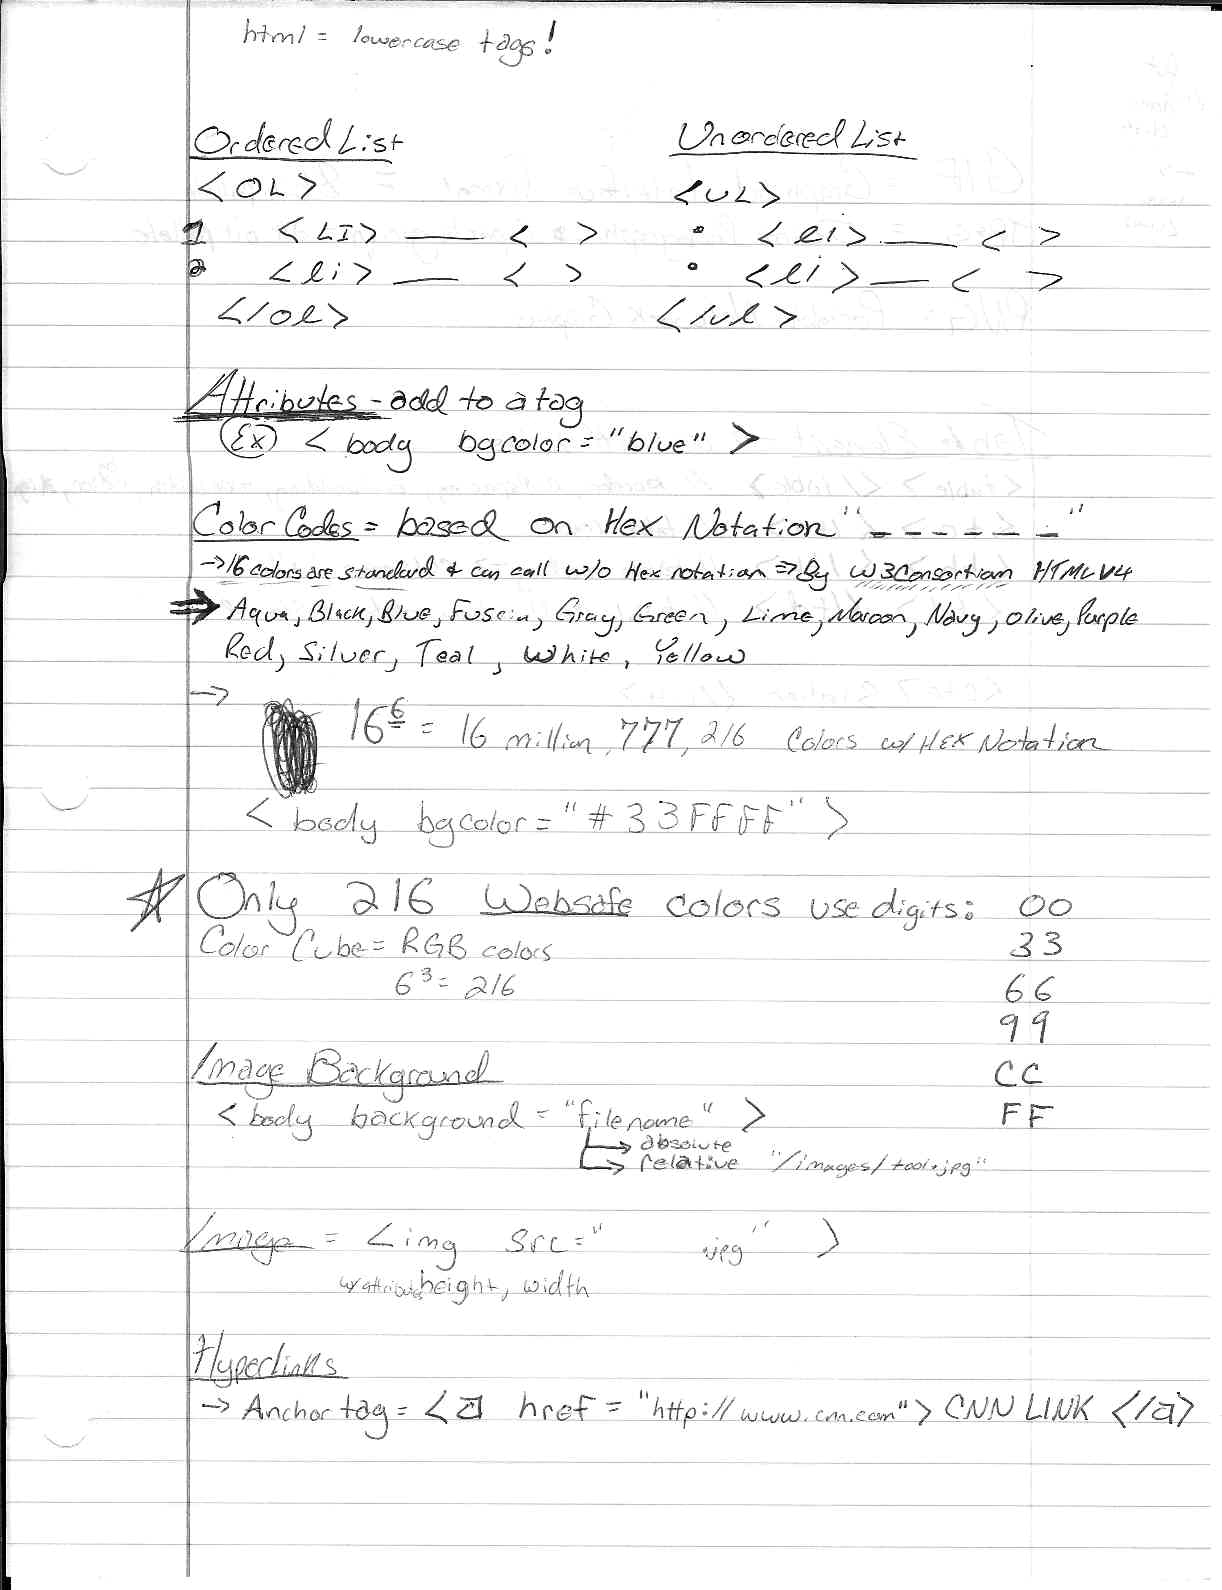 html = lowercase tags!
Ordered List Unordered List
<OL> <UL>
1 <LI> ___ < > • <li> ___ < >
2 <li> ___ < > • <li> ___ < >
</ol> </ul>
Attributes - add to a tag
Ex < body bgcolor = "blue" >
Color Codes = based on Hex Notation "_ _ _ _ _ _"
→ 16 colors are standard & can call w/o Hex notation ⇒ By W3Consortium HTML V4
⇒ Aqua, Black, Blue, Fuscia, Gray, Green, Lime, Maroon, Navy, Olive, Purple
Red, Silver, Teal, White, Yellow
→
16^6 = 16 million, 777, 216 Colors w/ HEX Notation
< body bgcolor = "#33FFFF" >
☆ Only 216 Websafe colors use digits: 00
Color Cube = RGB colors 33
6^3 = 216 66
99
Image Background CC
< body background = "filename" > FF
→ absolute
→ relative "/images/tool.jpg"
Image = <img src=" .jpg" >
w/ attributes height, width
Hyperlinks
→ Anchor tag = <a href = "http://www.cnn.com"> CNN LINK </a>